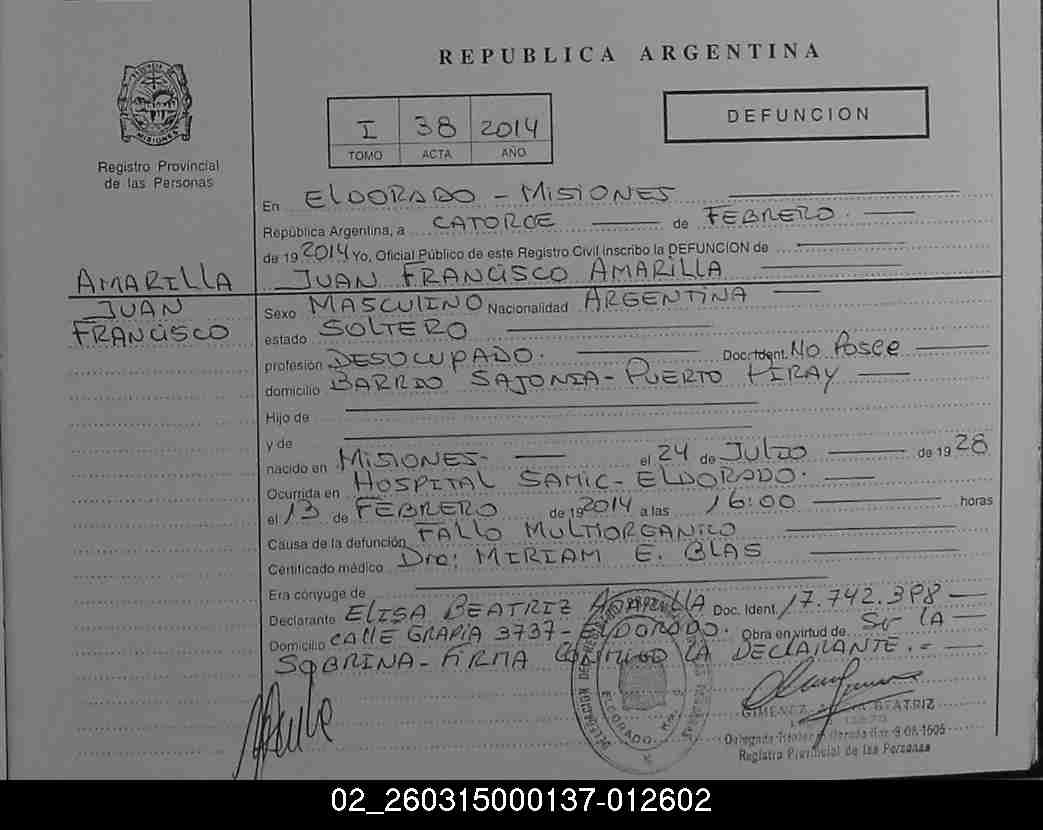 REPUBLICA ARGENTINA
MISIONES
Registro Provincial
de las Personas
I 38 2014
TOMO ACTA AÑO
DEFUNCION
En ELDORADO - MISIONES
República Argentina, a CATORCE de FEBRERO.
de 19 2014 Yo, Oficial Público de este Registro Civil inscribo la DEFUNCION de
AMARILLA
JUAN
FRANCISCO
JUAN FRANCISCO AMARILLA
Sexo MASCULINO Nacionalidad ARGENTINA
estado SOLTERO
profesión DESOCUPADO. Doc. Ident. No Posee
domicilio BARRIO SAJONIA - PUERTO PIRAY
Hijo de
y de
nacido en MISIONES - el 24 de JULIO de 19 28
Ocurrida en HOSPITAL SAMIC - ELDORADO.
el 13 de FEBRERO de 19 2014 a las 16:00 horas
Causa de la defunción FALLO MULTIORGANICO
Certificado médico Dra: MIRIAM E. BLAS
Era cónyuge de
Declarante ELISA BEATRIZ Doc. Ident. 17.742.398
Domicilio CALLE 3737 - ELDORADO. Obra en virtud de SER LA
SOBRINA - FIRMA CONMIGO LA DECLARANTE. -
ELDORADO
GIMENEZ BEATRIZ
Registro Provincial de las Personas
02_260315000137-012602